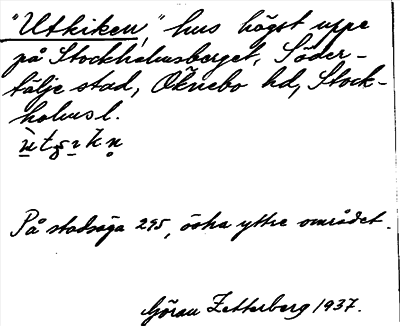 "Utkiken," hus högst uppe
på Stockholmsberget, Söder-
tälje stad, Öknebo hd, Stock-
holms l.
På stadsäga 295, östra yttre området.
Göran Zetterberg 1937.